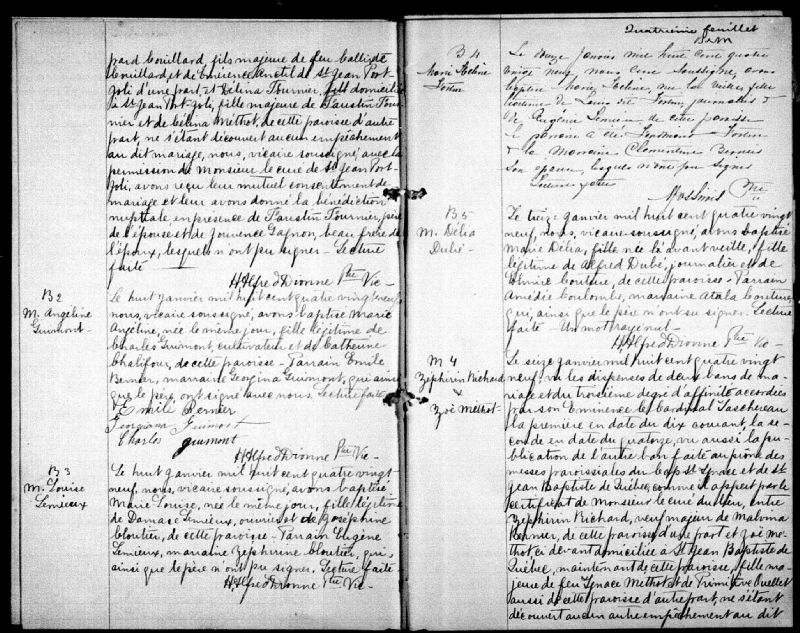 pard Couillard, fils majeure de feu Calliste
Couillard, et de Emérence Anctil de St Jean Port
Joli d'une part, et Délina Fournier, fill domiciliée
à St Jean Port-Joli, fille majeure de Faustin Four
nier et de Célina Méthot, de cette paroisse d'autre
part, ne s'étant découvert aucun empêchement
au dit mariage, nous, vicaire soussigné, avec la
permission de Monsieur le curé de St Jean Port-
Joli, avons reçu leur mutuel consentement de
mariage et leur avons donné la bénédiction
nuptiale en présence de Faustin Fournier, père
de l'épouse et de Jouvence Gagnon, beau frère de
l'époux, lesquels n'ont pu signer. Lecture
faite
H. Alfred Dionne Ptre Vic-
B 2
M. Angéline
Guimont-
Le huit janvier mil huit cent quatre vingt neuf,
nous, vicaire soussigné, avons baptisé Marie
Angéline, née le même jour, fille légitime de
Charles Guimont, cultivateur et de Catherine
Chalifour, de cette paroisse - Parrain Emile
Bernier, marraine Georgina Guimont, qui ainsi
que le père, ont signé avec nous. Lecture faite
Emile Bernier
Georgiana Guimont
Charles guimont
H. Alfred Dionne Ptre Vic-
B 3
M. Louise
Lemieux
Le huit janvier mil huit cent quatre vingt-
neuf, nous, vicaire soussigné, avons baptisé
Marie Louise, née le même jour, fille légitime
de Damase Lemieux, ouvrier et de Joséphine
Cloutier, de cette paroisse - Parrain Eugène
Lemieux, marraine Zéphirine Cloutier, qui,
ainsi que le père n'ont pu signer. Lecture faite-
H. Alfred Dionne Ptre Vic-
Quatrième feuillet
B 4
Marie
Fortin
Le onze Janvier mil huit cent quatre
vingt neuf, nous Curé Soussigné, avons
baptisé Marie, née la veille, fille
légitime de Louis Fortin, journalier &
de Eugénie, de cette paroisse
le parrain a été Fortin
& la Marraine Clementine Bernier
Son épouse, lesquels n'ont pu signer
Lecture faite
Ptre
B 5
M. Délia
Dubé-
Le treize janvier mil huit cent quatre vingt
neuf, nous, vicaire soussigné, avons baptisé
Marie Délia, fille, née l'avant veille, fille
légitime de Alfred Dubé, journalier et de
Couture, de cette paroisse - Parrain
Amédée Coulombe, marraine Atala Couture,
qui, ainsi que le père n'ont su signer. Lecture
faite - Un mot rayé nul -
H. Alfred Dionne Ptre Vic-
M 4
Zéphirin Richard
&
Zoé Méthot-
Le seize janvier mil huit cent quatre vingt
neuf, vu les dispenses de deux bans de ma-
riage et du troisième degré d'affinité accordées
par son Eminence le Cardinal Taschereau
la première en date du dix courant, la se-
conde en date du quatorze, vu aussi la pu-
blication de l'autre ban faite au prône des
messes paroissiales du Cap St Ignace et de St
Jean Baptiste de Québec, comme il appert par le
certificat de Monsieur le curé du lieu, entre
Zéphirin Richard, veuf majeur de Malvina
Bernier, de cette paroisse d'une part et Zoé Mé-
thot ci-devant domiciliée à St Jean Baptiste de
Québec, maintenant de cette paroisse, fille ma-
jeure de feu Ignace Méthot et de Primitive Ouellet
aussi de cette paroisse d'autre part, ne s'étant
découvert aucun autre empêchement au dit